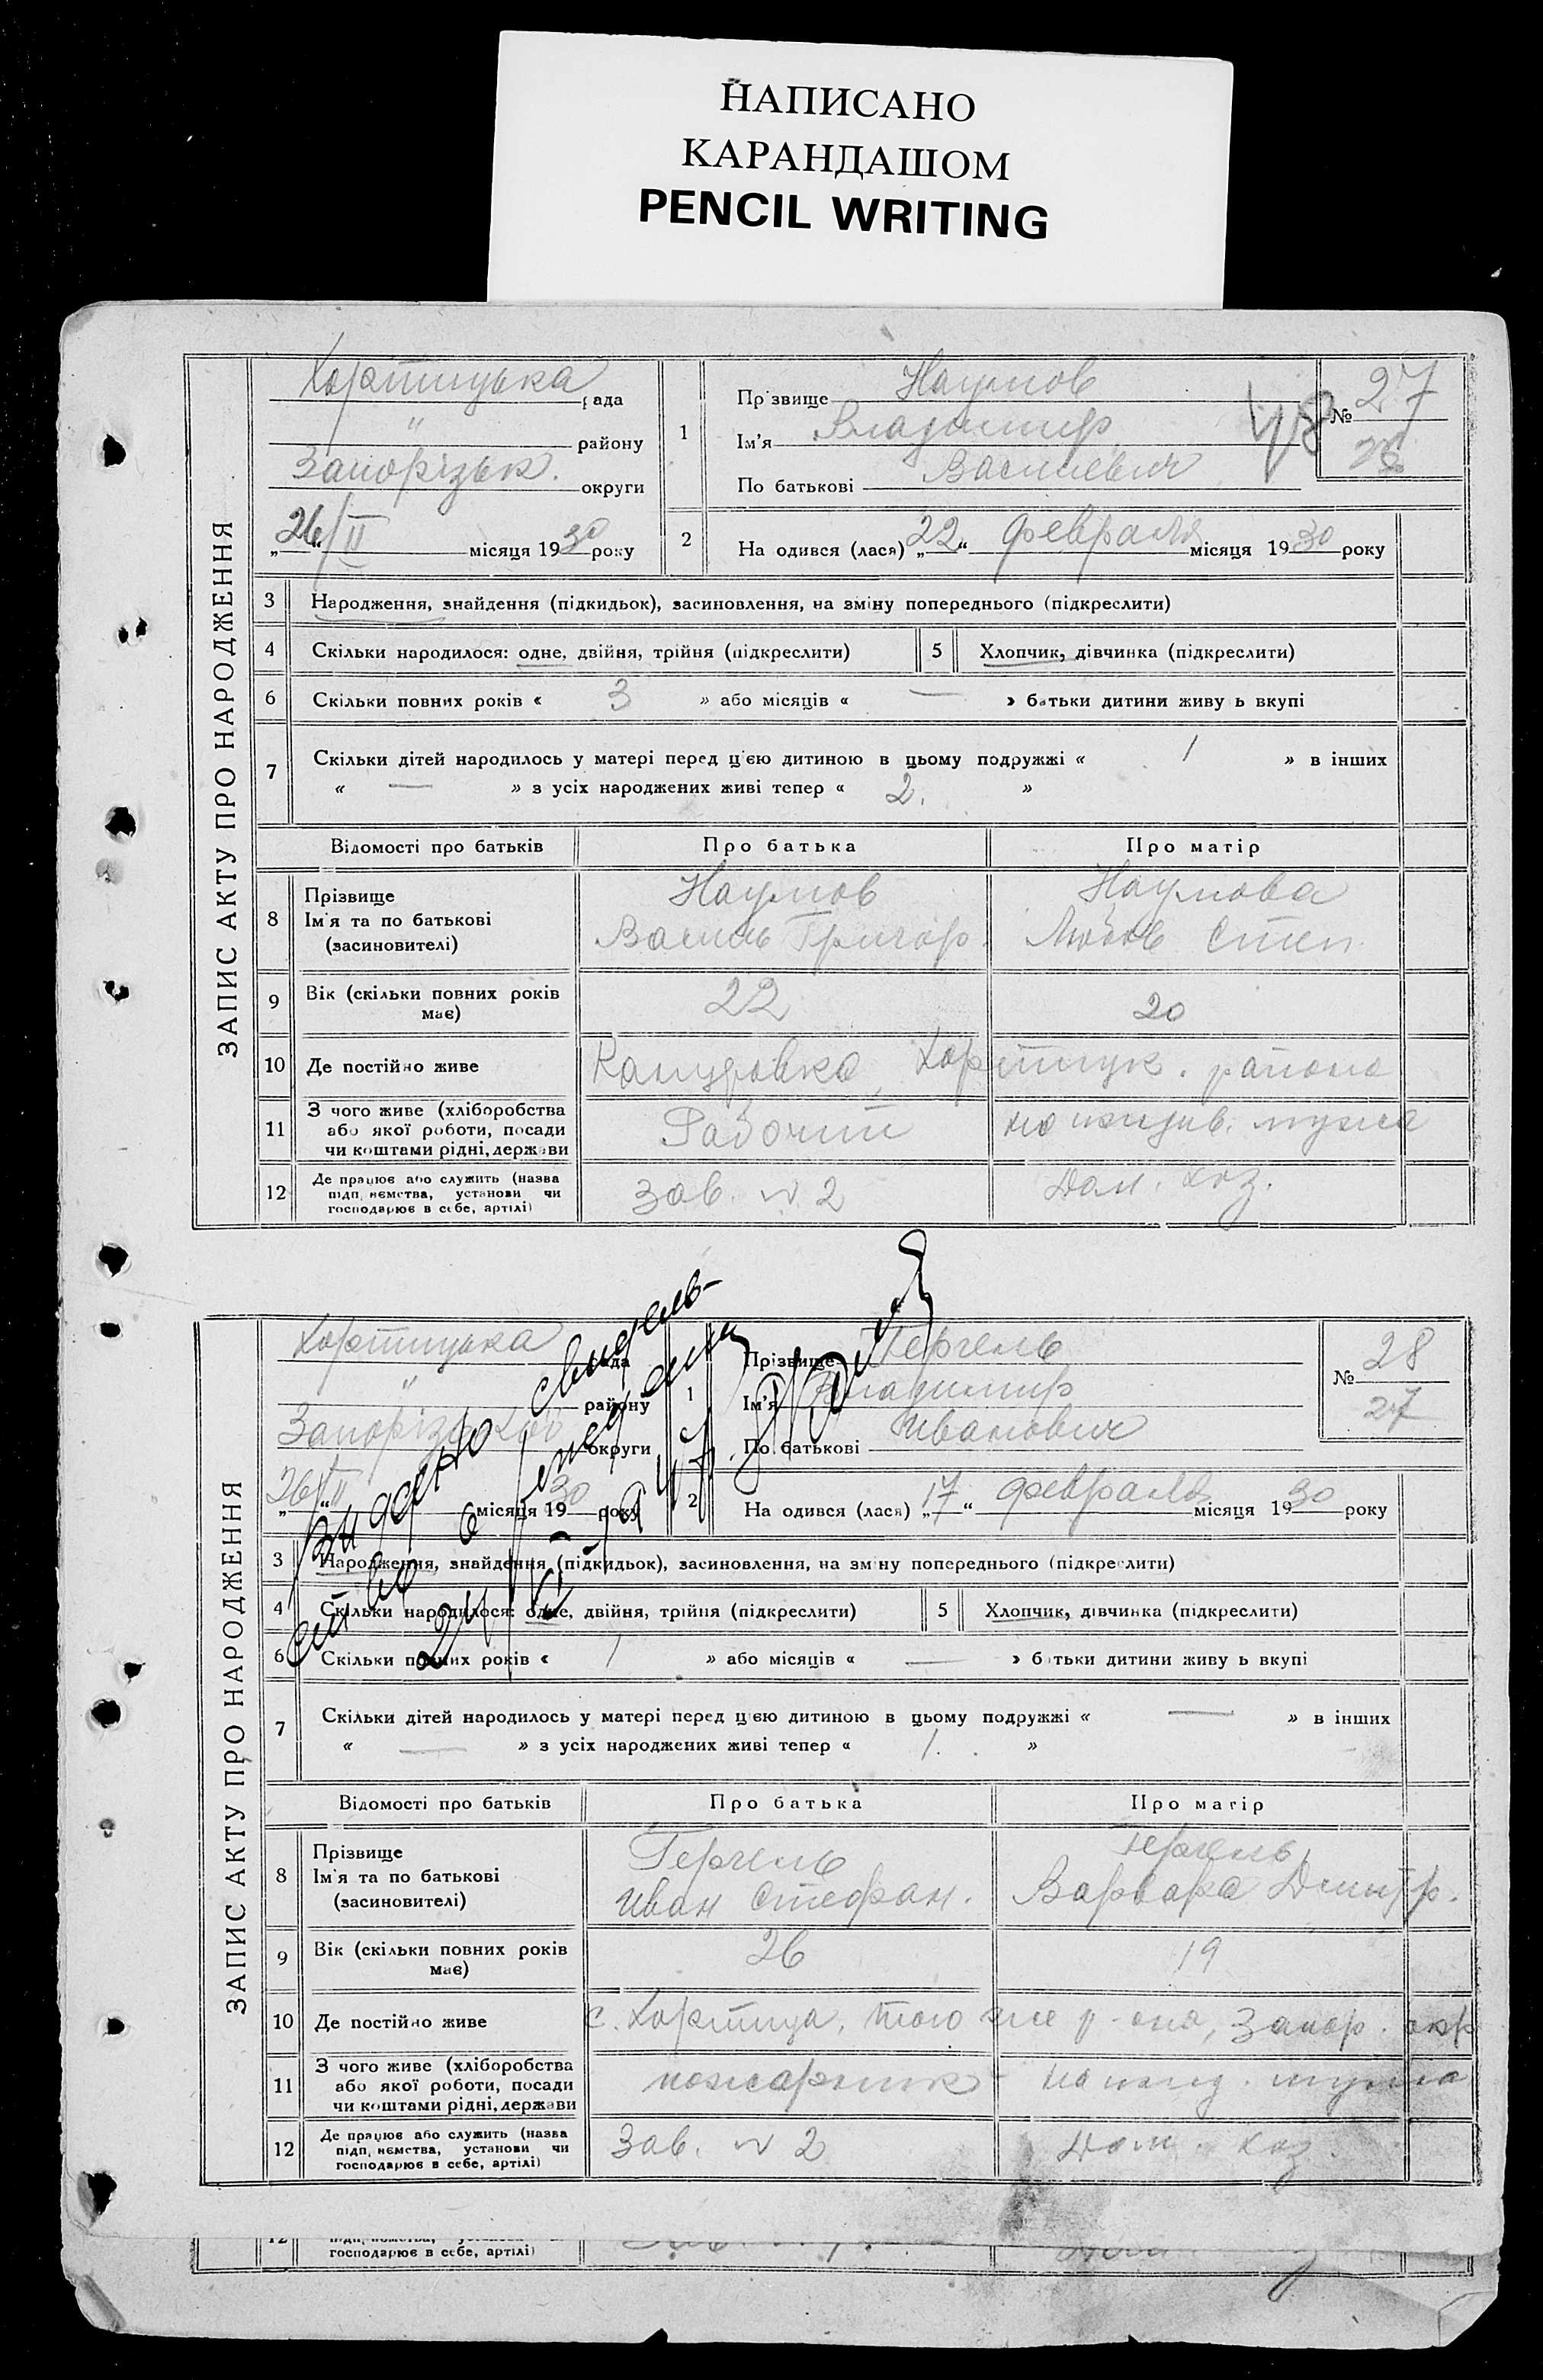 НАПИСАНО
КАРАНДАШОМ
PENCIL WRITING
ЗАПИС АКТУ ПРО НАРОДЖЕННЯ
Хортицька рада
" району
Запорізьк. округи
„26/II місяця 1930 року
1 Прізвище Наумов
Ім'я Владимир
По батькові Василевич
48
№ 27
26
2 На одився (лася) „22“ февраля місяця 1930 року
3 Народження, знайдення (підкидьок), засиновлення, на зміну попереднього (підкреслити)
4 Скільки народилося: одне, двійня, трійня (підкреслити) 5 Хлопчик, дівчинка (підкреслити)
6 Скільки повних років « 3 » або місяців « — » батьки дитини живу ь вкупі
7 Скільки дітей народилось у матері перед ц'єю дитиною в цьому подружжі « 1 » в інших
« — » з усіх народжених живі тепер « 2. »
Відомості про батьків Про батька Про матір
8 Прізвище
Ім'я та по батькові
(засиновителі)
Наумов
Василь Григор.
Наумова
Любовь Степ.
9 Вік (скільки повних років має) 22 20
10 Де постійно живе Канцровка, Хортицк. района
11 З чого живе (хліборобства
або якої роботи, посади
чи коштами рідні, держави
Рабочий на иждив. мужа
12 Де працює або служить (назва
підп, иємства, установи чи
господарює в себе, артілі)
Зав. № 2 Дом. хоз.
ЗАПИС АКТУ ПРО НАРОДЖЕННЯ
Хортицька рада
" району
округи
26/II місяця 1930 року
1 Прізвище Гергель
Ім'я Владимир
По батькові Иванович
№ 28
27
2 На одився (лася) „17“ февраля місяця 1930 року
3 Народження, знайдення (підкидьок), засиновлення, на зміну попереднього (підкреслити)
4 Скільки народилося: одне, двійня, трійня (підкреслити) 5 Хлопчик, дівчинка (підкреслити)
6 Скільки повних років « 1 » або місяців « — » батьки дитини живу ь вкупі
7 Скільки дітей народилось у матері перед цією дитиною в цьому подружжі « — » в інших
« — » з усіх народжених живі тепер « 1. »
Відомості про батьків Про батька Про матір
8 Прізвище
Ім'я та по батькові
(засиновителі)
Гергель
Иван Стефан.
Гергель
Варвара Дмитр.
9 Вік (скільки повних років має) 26 19
10 Де постійно живе с. Хортица, того же р-она, Запор. окр
11 З чого живе (хліборобства
або якої роботи, посади
чи коштами рідні, держави
пожарник на ижд. мужа
12 Де працює або служить (назва
підп, иємства, установи чи
господарює в себе, артілі)
Зав. № 2 Дом. хоз.
господарює в себе, артілі)